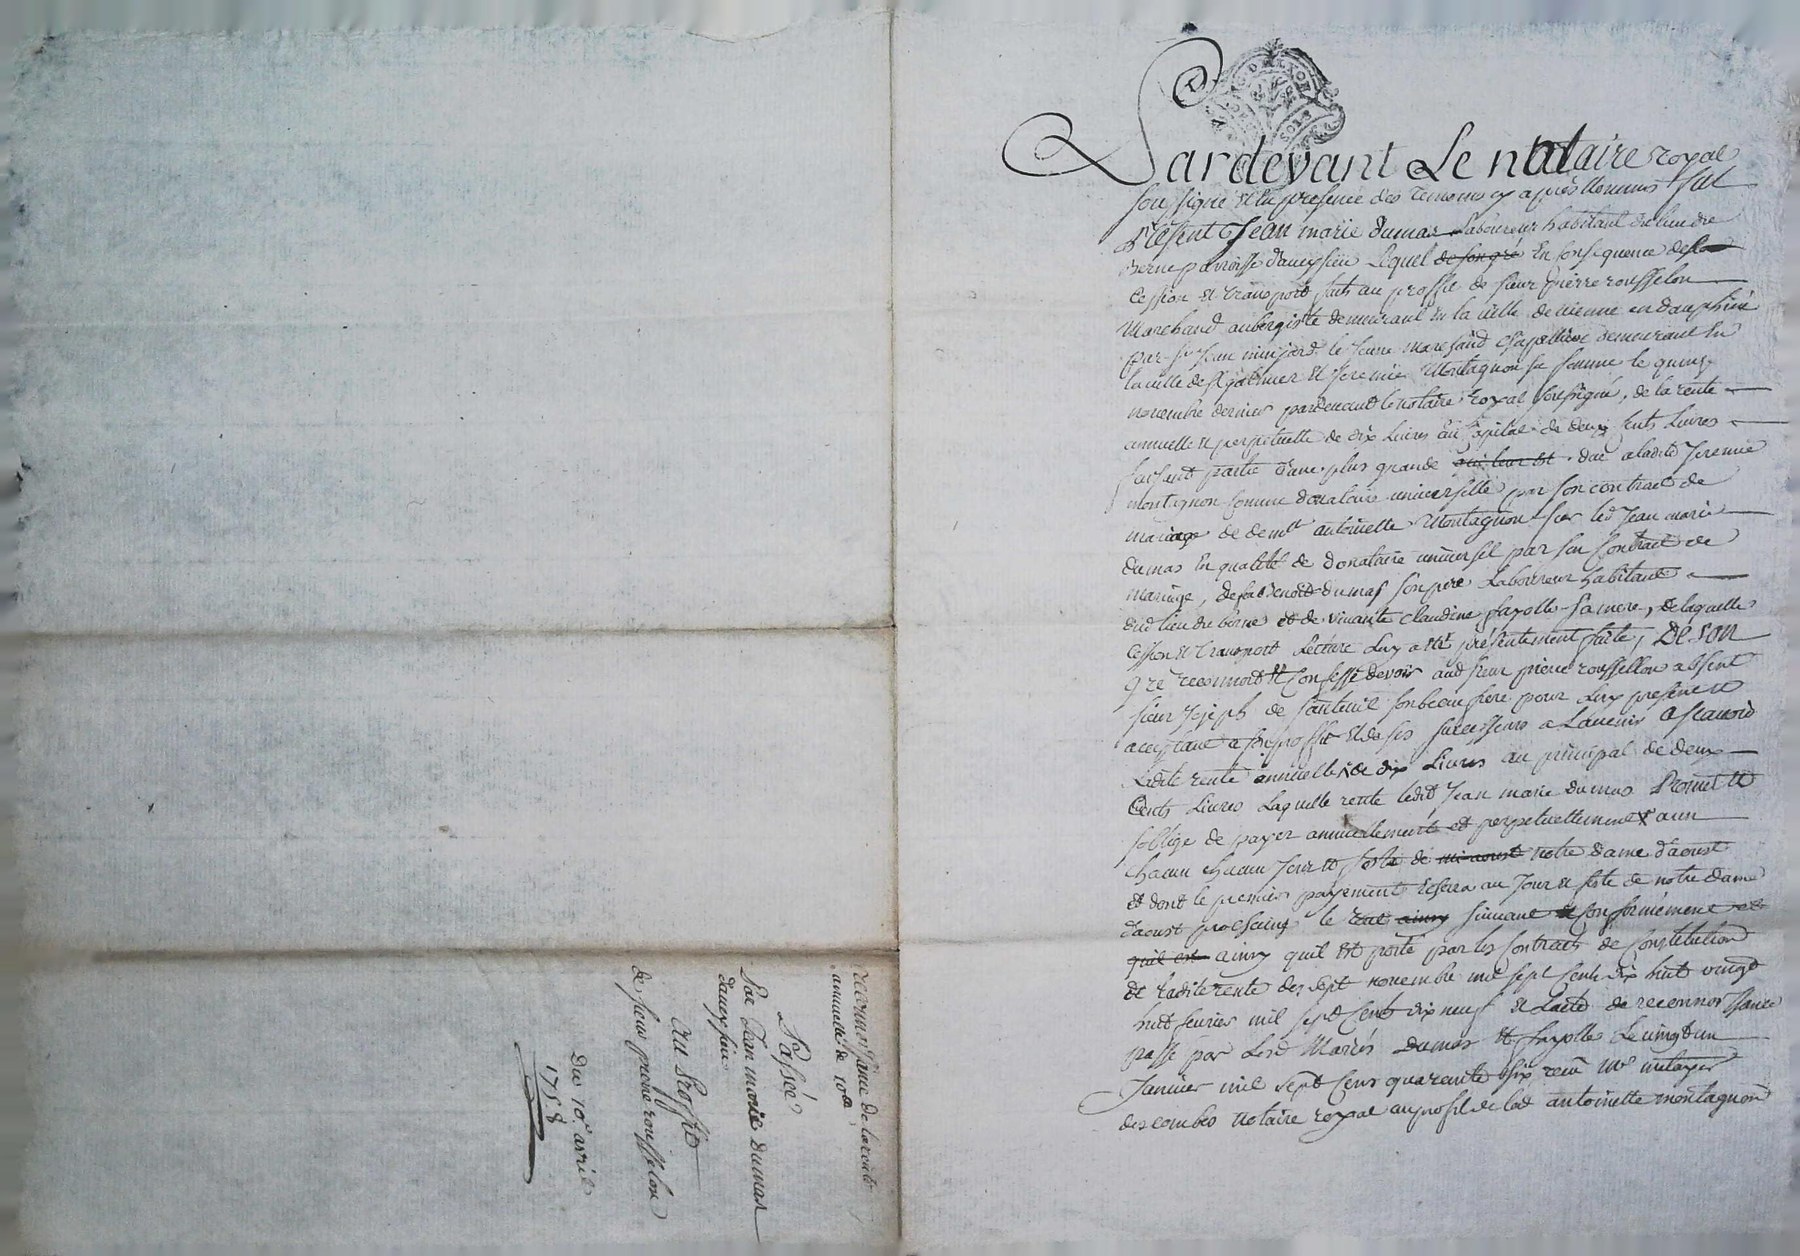 Pardevant Le notaire royal
soussigné et en presence des temoins cy après nommés fut
Present Jean marie dumas Laboureur habitant du lieu de
Berne parroisse d'aveysieu Lequel de son gré En consequence de la
Cession et transport faits au proffit de sieur pierre rousselon
Marchand aubergiste demeurant en la ville de vienne en dauphiné
par sr Jean le Jeune marchand chapellier demeurant en
la ville de st galmier et Jeremie Montagnon sa femme le quinze
novembre dernier pardevant le notaire royal soussigné, de la rente
annuelle et perpetuelle de dix Livres au Capital de deux Cents Livres
faisant partie d'une plus grande qui leur est due a ladite Jeremie
montagnon comme donataire universelle par son contract de
mariage de demlle antoinette Montagnon par led Jean marie
dumas En qualité de donataire universel par son Contract de
mariage, de feu Benoit dumas son pere Laboureur habitant
dud lieu de berne et de vivante Claudine fayolle sa mere, de laquelle
Cession et transport Lecture Luy a été présentement faite, De son
gré reconnoit et Confesse devoir aud sieur pierre rousselon absent
sieur Joseph de santeuil son beau frere pour Luy présent et
acceptant a son proffit et de ses successeurs a Lavenir a scavoir
Ladite rente annuelle de dix Livres au principal de deux
Cents Livres Laquelle rente ledit Jean marie dumas Promet et
s'oblige de payer annuellement et perpetuellement a un
chacun chacun Jour et feste de mi aoust notre dame d'aoust
et dont le premier payement Echera au Jour et feste de notre dame
d'aoust prochaine le tout ainsy suivant et conformement et
qu'il est ainsy quil est porté par les Contracts de Constitution
de ladite rente des sept novembre mil sept Cents dix huit vingt
huit fevrier mil sept Cents dix neuf et L'acte de reconnoissance
passé par Lesd Mariés dumas et fayolle Le vingt un
Janvier mil sept Cens quarente six recu Me
descombes notaire royal au profit de lad antoinette montagnon
reconnoissance de la rente
annuelle de 10ll
Passée
Par Jean marie dumas
d'aveysieu
Au Proffit
de sieur pierre rousselon
Du 10e avril
1758